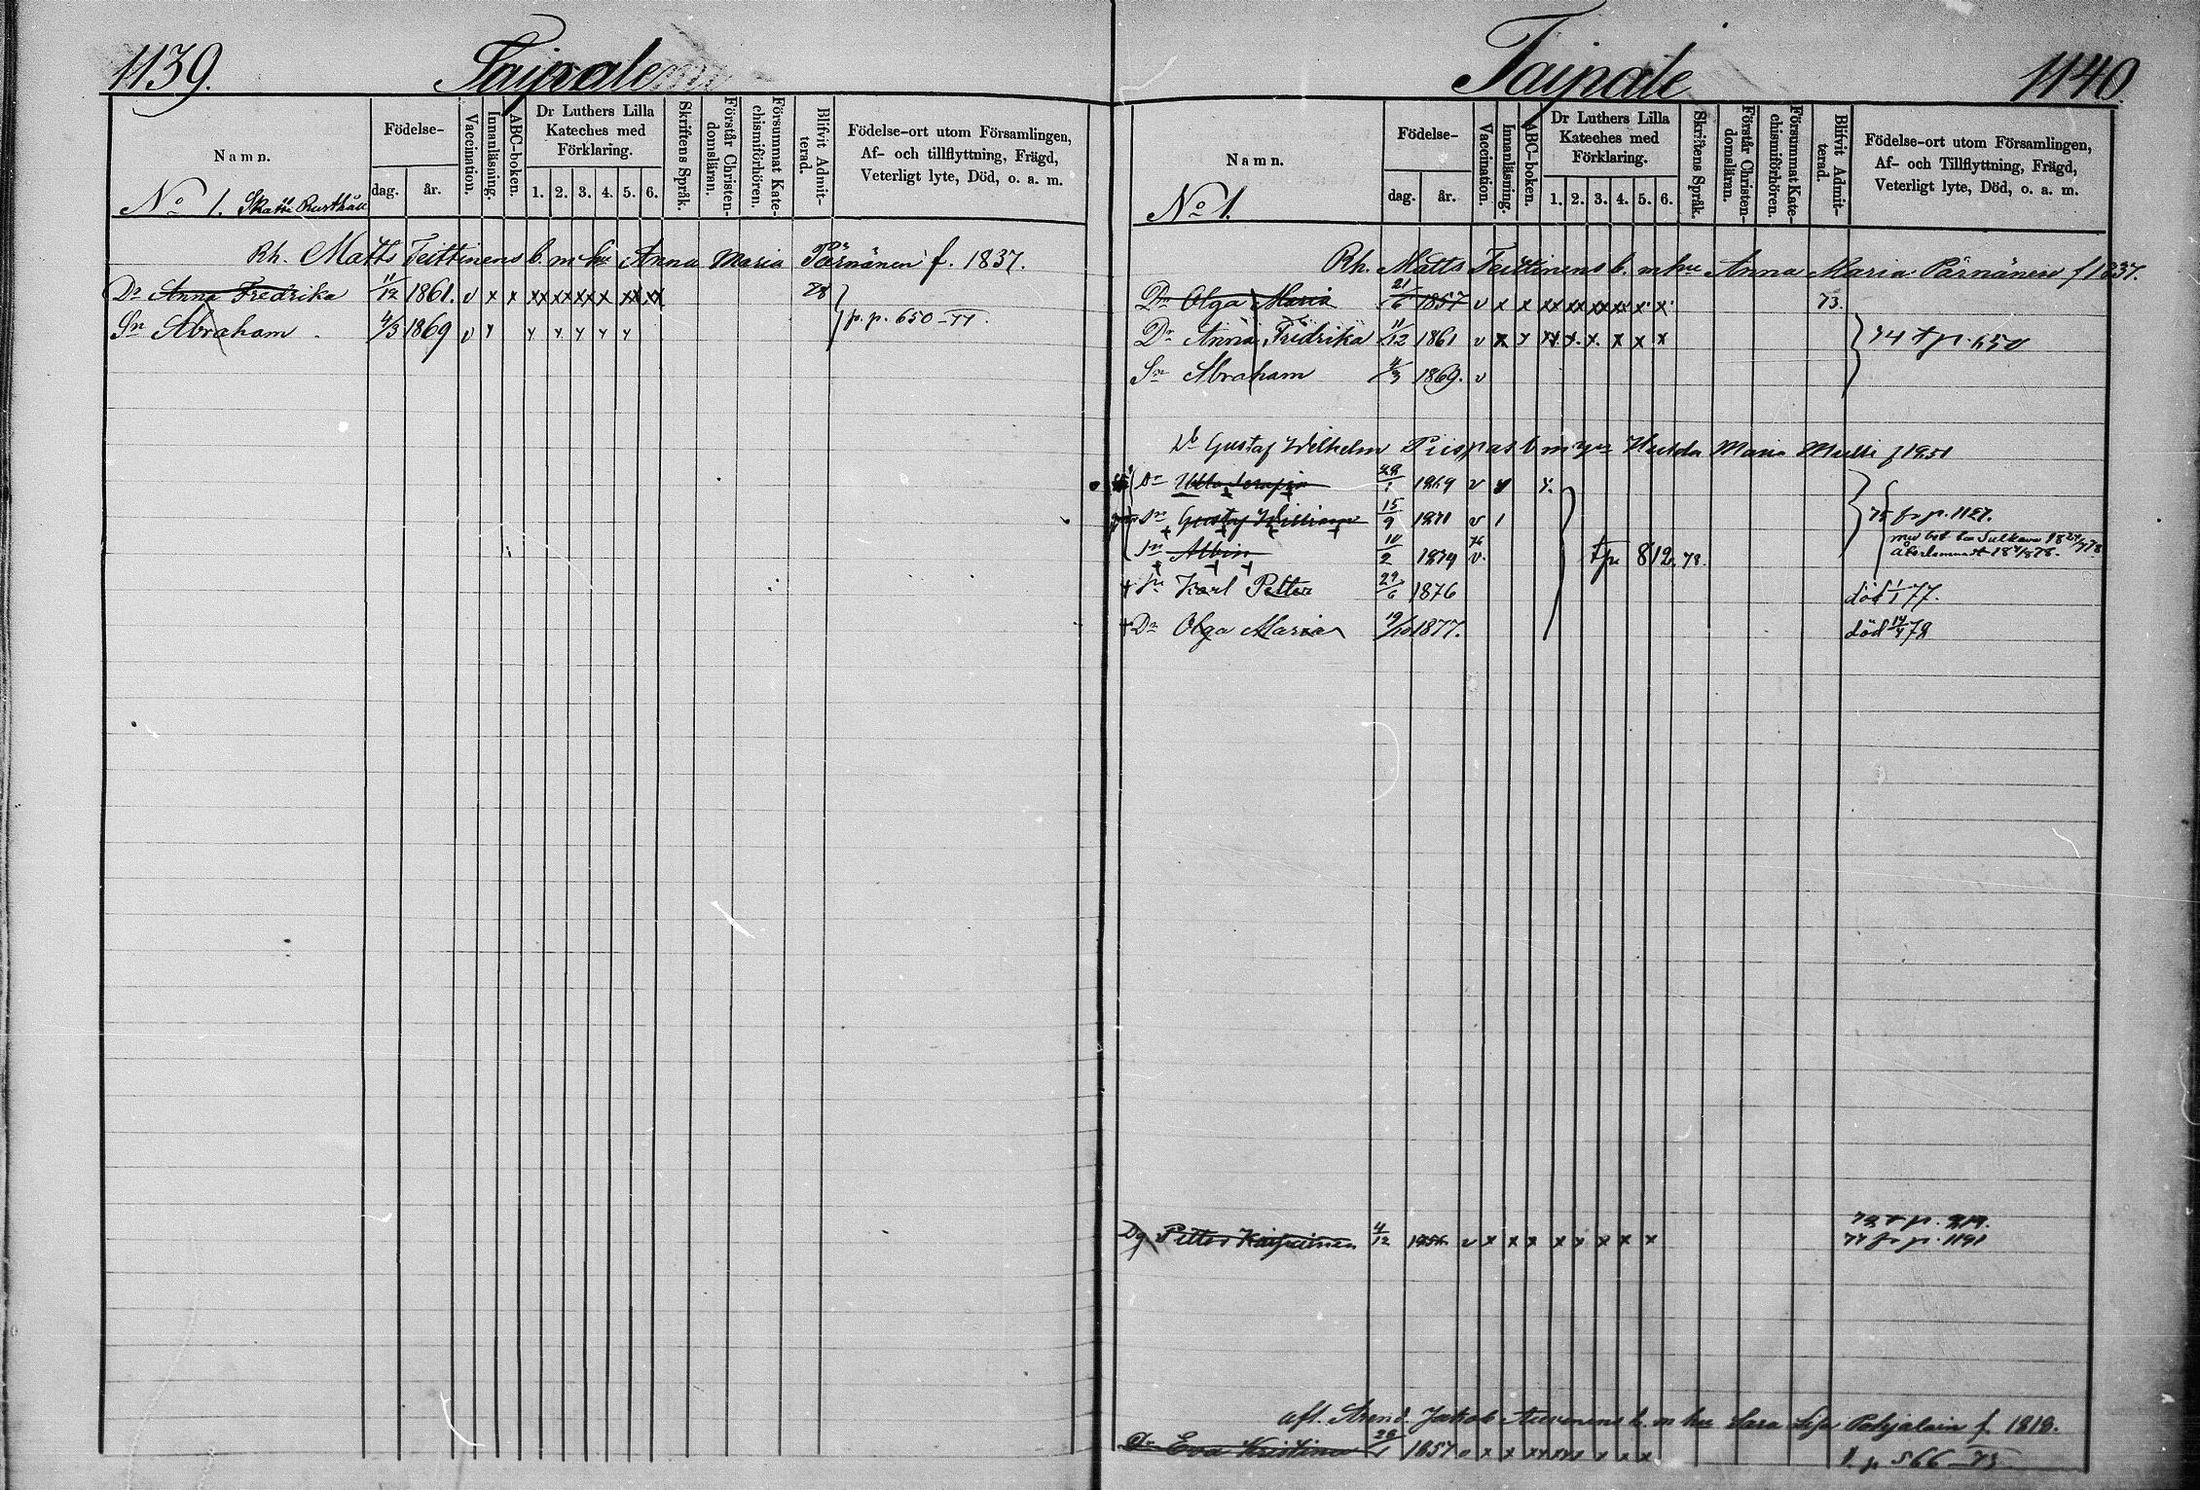 1139.
Taipale
Namn.
Födelse-
dag.
år.
Vaccination.
Innanläsning.
ABC-boken.
Dr Luthers Lilla
Kateches med
Förklaring.
1. 2. 3. 4. 5. 6.
Skriftens Språk.
Förstår Christen-
domsläran.
Försummat Kate-
chismiförhören.
Blifvit Admit-
terad.
Födelse-ort utom Församlingen,
Af- och tillflyttning, Frägd,
Veterligt lyte, Död, o. a. m.
No 1. Rusthåll
Rh. Matts Teittinens b. m hu Anna Maria Pärnänen f. 1837.
Dr Anna Fredrika 11/12 1861. v x x xx xx xx x xx xx 78
Sn Abraham 4/3 1869 v y y y y y y p.p. 650-77.
Taipale
1140
Namn.
Födelse-
dag.
år.
Vaccination.
Innanläsning.
ABC-boken.
Dr Luthers Lilla
Kateches med
Förklaring.
1. 2. 3. 4. 5. 6.
Skriftens Språk.
Förstår Christen-
domsläran.
Försummat Kate-
chismiförhören.
Blifvit Admit-
terad.
Födelse-ort utom Församlingen,
Af- och Tillflyttning, Frägd,
Veterligt lyte, Död, o. a. m.
No 1.
Rh. Matts Teittinens b. m hu Anna Maria Pärnänen f 1837.
Dr Olga Maria 21/6 1857 v x x xx xx xx x x x 73.
Dr Anna Fredrika 11/12 1861 v x y xx x x x x x 74 p. 650
Sn Abraham 4/3 1869. v
Gustaf Wilhelm b m Hulda Maria f 1851
Dr 1869 v
Sn Gustaf William 15/9 1871 v 75 fr p. 1127.
Sn Albin 10/2 1874 v. 812. 78.
+ Sn Karl Petter 29/6 1876 död 1/1 77.
+ Dr Olga Maria 19/10 1877. död 14/4 78
Petter 4/12 v x x x x y x x x
fr p. 1191
Jakob b. m hu Sara Pohjalain f. 1818.
Dr Eva Kristina 1857 v x x x
p 566-75